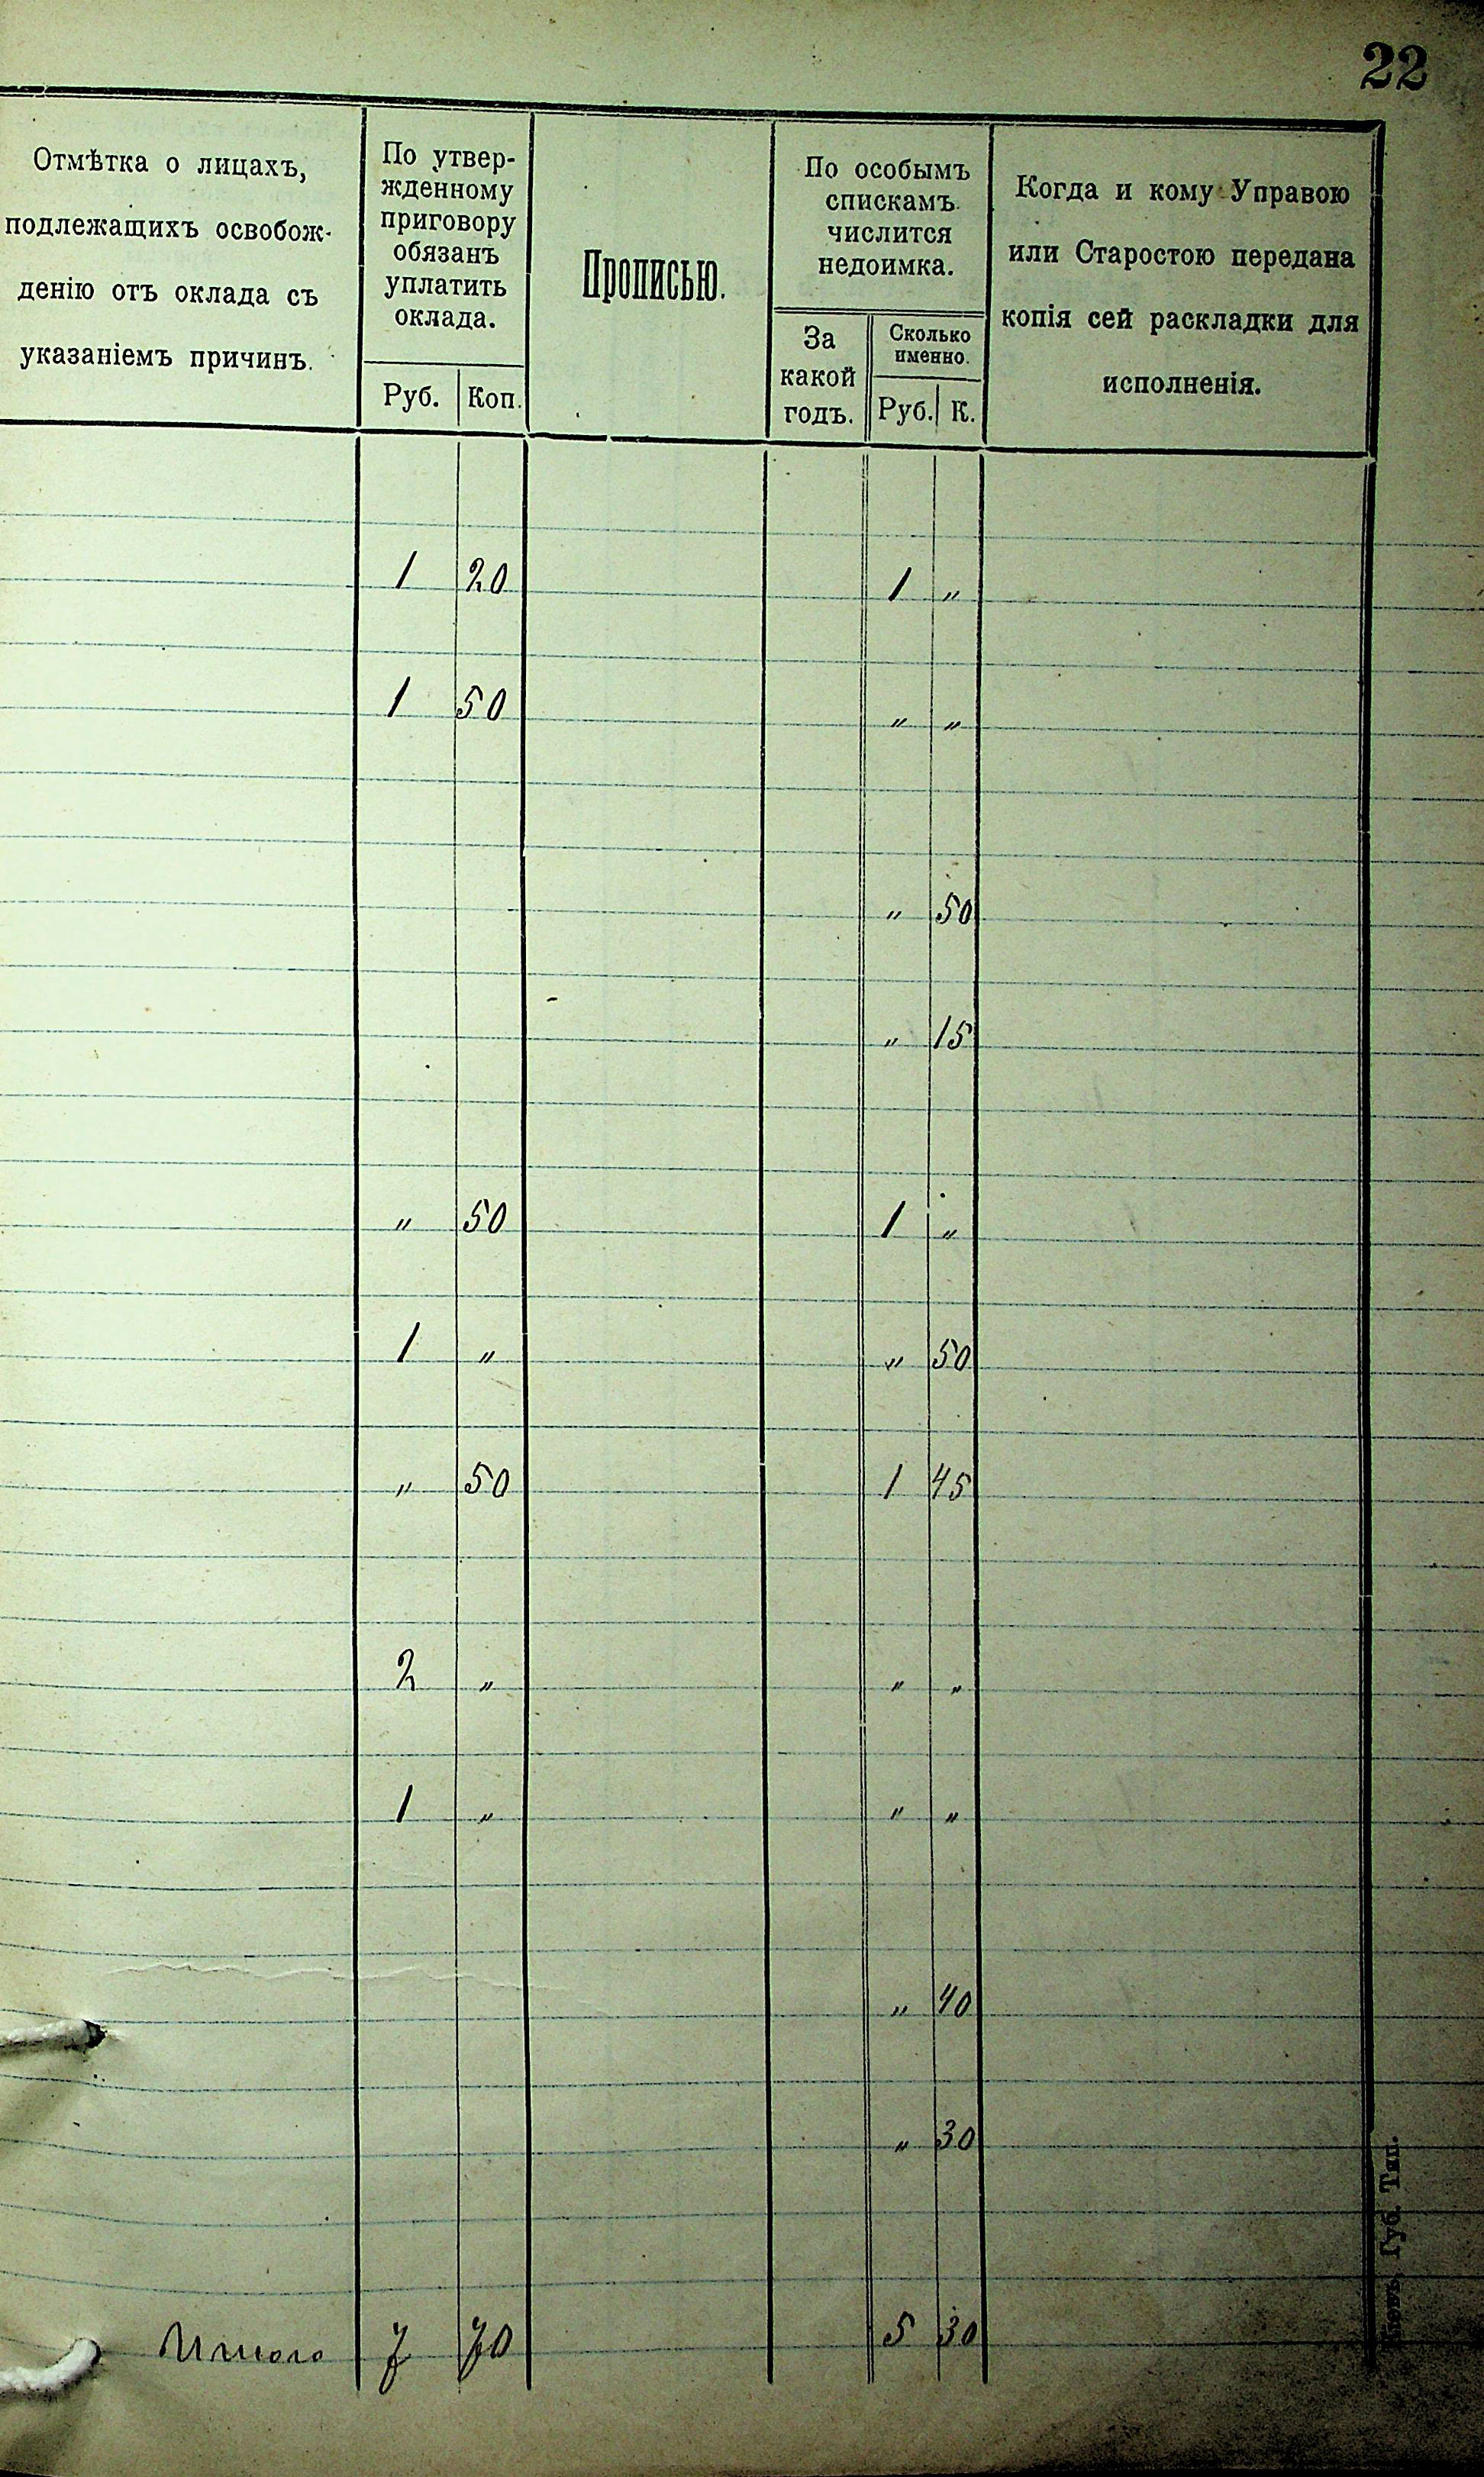 22
Отмѣтка о лицахъ,
подлежащихъ освобож-
денію отъ оклада съ
указаніемъ причинъ.
По утвер-
жденному
приговору
обязанъ
уплатить
оклада.
Руб. Коп.
Прописью.
По особымъ
спискамъ
числится
недоимка.
За
какой
годъ.
Сколько
именно.
Руб. К.
Когда и кому Управою
или Старостою передана
копія сей раскладки для
исполненія.
1 20 1 „
1 50 „ „
„ 50
„ 15
„ 50 1 „
1 „ „ 50
„ 50 1 45
2 „ „ „
1 „ „ „
„ 40
„ 30
Итого 7 70 5 30
Губ. Тип.